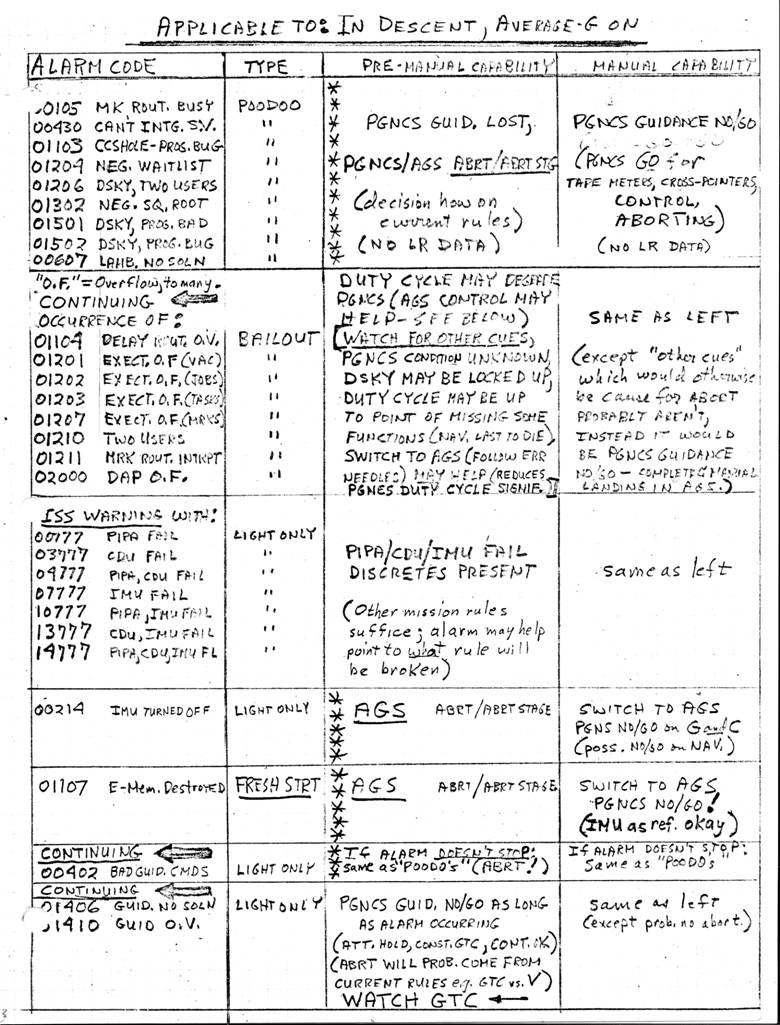 APPLICABLE TO: IN DESCENT, AVERAGE-G ON
ALARM CODE TYPE PRE-MANUAL CAPABILITY MANUAL CAPABILITY
00105 MK ROUT. BUSY POODOO
00430 CAN'T INTG. S.V. "
01103 CCSHOLE-PROG. BUG "
01204 NEG. WAITLIST "
01206 DSKY, TWO USERS "
01302 NEG. SQ. ROOT "
01501 DSKY, PROG. BAD "
01502 DSKY, PROG. BUG "
00607 LAMB. NO SOLN "
PGNCS GUID. LOST,
PGNCS/AGS ABRT/ABRT STG
(decision how on
current rules)
(NO LR DATA)
PGNCS GUIDANCE NO/GO
(PGNCS GO for
TAPE METERS, CROSS-POINTERS,
CONTROL,
ABORTING)
(NO LR DATA)
"O.F." = Overflow, to many.
CONTINUING
OCCURRENCE OF:
01104 DELAY ROUT. O.V. BAILOUT
01201 EXECT. O.F (VAC) "
01202 EXECT. O.F, (JOBS) "
01203 EXECT. O.F. (TASKS) "
01207 EXECT. O.F. (MRKS) "
01210 TWO USERS "
01211 MRK ROUT. INTRPT "
02000 DAP O.F. "
DUTY CYCLE MAY DEGRADE
PGNCS (AGS CONTROL MAY
HELP-SEE BELOW)
[WATCH FOR OTHER CUES,
PGNCS CONDITION UNKNOWN,
DSKY MAY BE LOCKED UP,
DUTY CYCLE MAY BE UP
TO POINT OF MISSING SOME
FUNCTIONS (NAV. LAST TO DIE),
SWITCH TO AGS (FOLLOW ERR
NEEDLES) MAY HELP (REDUCES
PGNCS DUTY CYCLE SIGNIF.)]
SAME AS LEFT
(except "other cues"
which would otherwise
be cause for ABORT
PROBABLY AREN'T,
INSTEAD IT WOULD
BE PGNCS GUIDANCE
NO/GO - COMPLETE MANUAL
LANDING IN AGS.)
ISS WARNING WITH:
00777 PIPA FAIL LIGHT ONLY
03777 CDU FAIL "
04777 PIPA, CDU FAIL "
07777 IMU FAIL "
10777 PIPA, IMU FAIL "
13777 CDU, IMU FAIL "
14777 PIPA, CDU, IMU FL "
PIPA/CDU/IMU FAIL
DISCRETES PRESENT
(Other mission rules
suffice; alarm may help
point to what rule will
be broken)
same as left
00214 IMU TURNED OFF LIGHT ONLY AGS ABRT/ABRT STAGE
SWITCH TO AGS
PGNS NO/GO on G and C
(poss. NO/GO on NAV.)
01107 E-Mem. Destroyed FRESH STRT AGS ABRT/ABRT STAGE
SWITCH TO AGS,
PGNCS NO/GO!
(IMU as ref. okay)
CONTINUING
00402 BAD GUID. CMDS LIGHT ONLY
If ALARM DOESN'T STOP:
same as "POODO's" (ABRT!)
If ALARM DOESN'T STOP:
Same as "POODO's"
CONTINUING
01406 GUID. NO SOLN LIGHT ONLY
01410 GUID O.V. "
PGNCS GUID. NO/GO AS LONG
AS ALARM OCCURRING
(ATT. HOLD, CONST. GTC, CONT. OK)
(ABRT WILL PROB. COME FROM
CURRENT RULES e.g. GTC vs. V)
WATCH GTC
same as left
(except prob. no abort.)